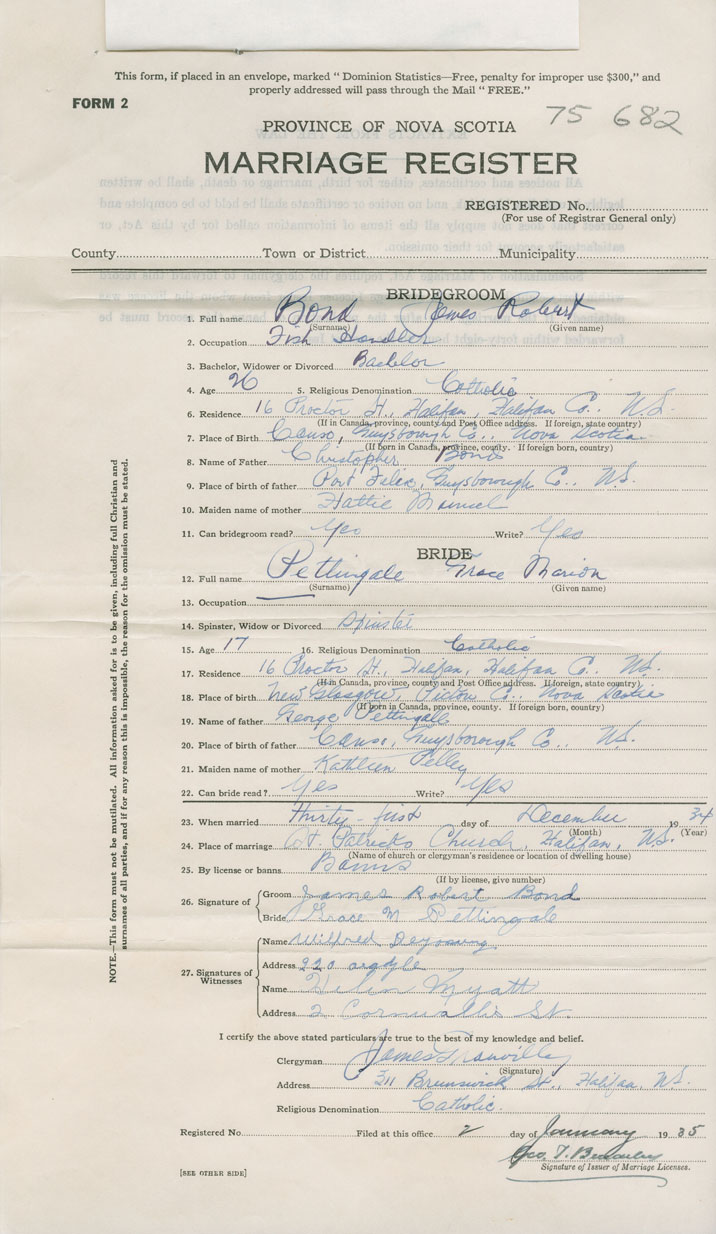 This form, if placed in an envelope, marked “ Dominion Statistics—Free, penalty for improper use $300,” and
properly addressed will pass through the Mail “ FREE.”
FORM 2
75 682
PROVINCE OF NOVA SCOTIA
MARRIAGE REGISTER
REGISTERED No.
(For use of Registrar General only)
County Town or District Municipality
BRIDEGROOM
1. Full name Bond James Robert
(Surname) (Given name)
2. Occupation Fish Handler
3. Bachelor, Widower or Divorced Bachelor
4. Age 26 5. Religious Denomination Catholic
6. Residence 16 Proctor St., Halifax, Halifax Co., N.S.
(If in Canada, province, county and Post Office address. If foreign, state country)
7. Place of Birth Canso, Guysborough Co., Nova Scotia
(If born in Canada, province, county. If foreign born, country)
8. Name of Father Christopher Bond
9. Place of birth of father Port Felix, Guysborough Co., N.S.
10. Maiden name of mother Hattie
11. Can bridegroom read? Yes Write? Yes
BRIDE
12. Full name Pettingale Grace Marion
(Surname) (Given name)
13. Occupation
14. Spinster, Widow or Divorced Spinster
15. Age 17 16. Religious Denomination Catholic
17. Residence 16 Proctor St., Halifax, Halifax Co. N.S.
(If in Canada, province, county and Post Office address. If foreign, state country)
18. Place of birth New Glasgow, Pictou Co., Nova Scotia
(If born in Canada, province, county. If foreign born, country)
19. Name of father George Pettingale
20. Place of birth of father Canso, Guysborough Co., N.S.
21. Maiden name of mother Kathleen Pelley
22. Can bride read? Yes Write? Yes
23. When married thirty-first day of December 19 34
(Month) (Year)
24. Place of marriage St. Patricks Church, Halifax, N.S.
(Name of church or clergyman's residence or location of dwelling house)
25. By license or banns Banns
(If by license, give number)
26. Signature of Groom James Robert Bond
Bride Grace M Pettingale
27. Signatures of Witnesses
Name Wilfred Deyoung
Address 220 argyle
Name Helen Myatt
Address 2 Cornwallis St.
I certify the above stated particulars are true to the best of my knowledge and belief.
Clergyman James
(Signature)
Address 311 Brunswick St., Halifax, N.S.
Religious Denomination Catholic.
Registered No. Filed at this office 2 day of January 19 35
Geo. T.
Signature of Issuer of Marriage Licenses.
[SEE OTHER SIDE]
NOTE.—This form must not be mutilated. All information asked for is to be given, including full Christian and
surnames of all parties, and if for any reason this is impossible, the reason for the omission must be stated.